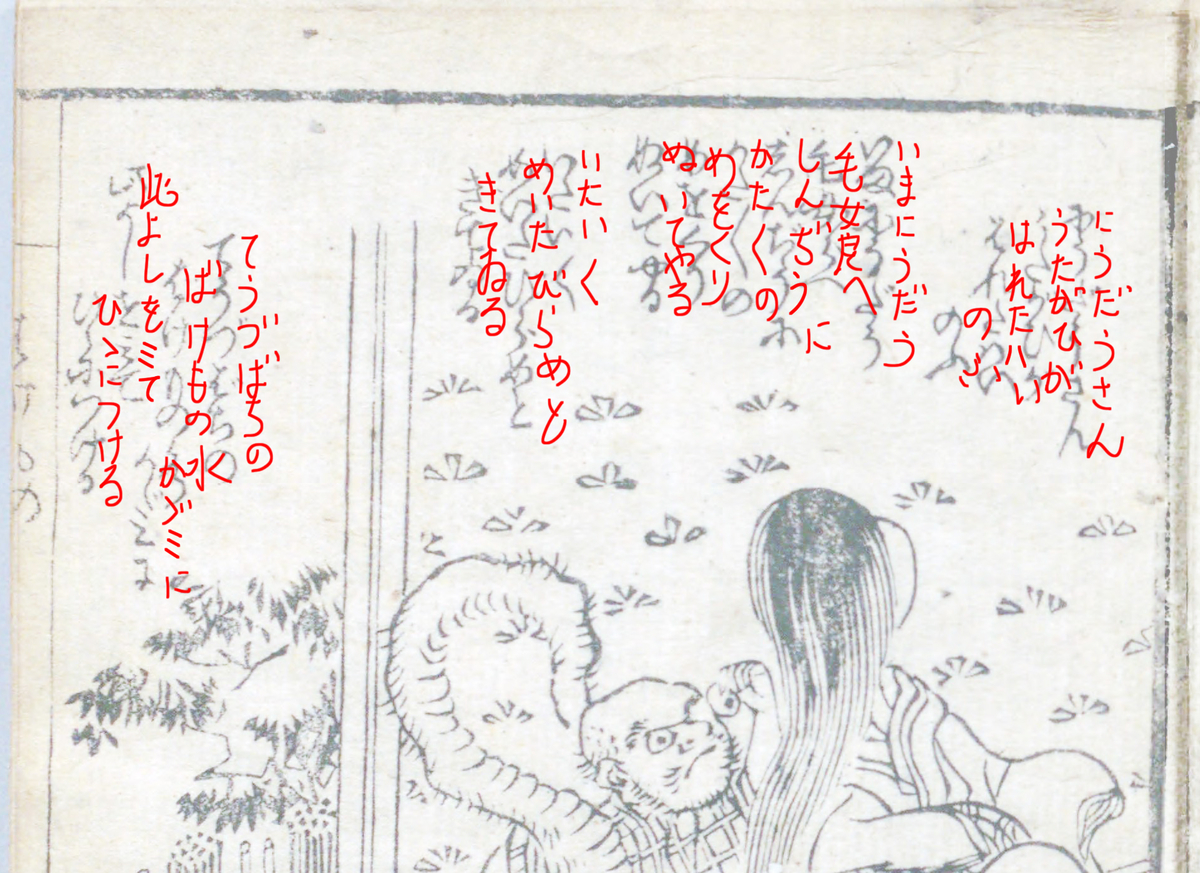 にうだうさん
うたがひが
はれたハい
のふ
いまにうだう
毛女良へ
しんぢうに
かたくの
めをくり
ぬいてやる
いたいく
めいたびらめと
きてゐる
てうづばちの
ばけもの水
かゞミに
此よしをミて
ひゝにつける